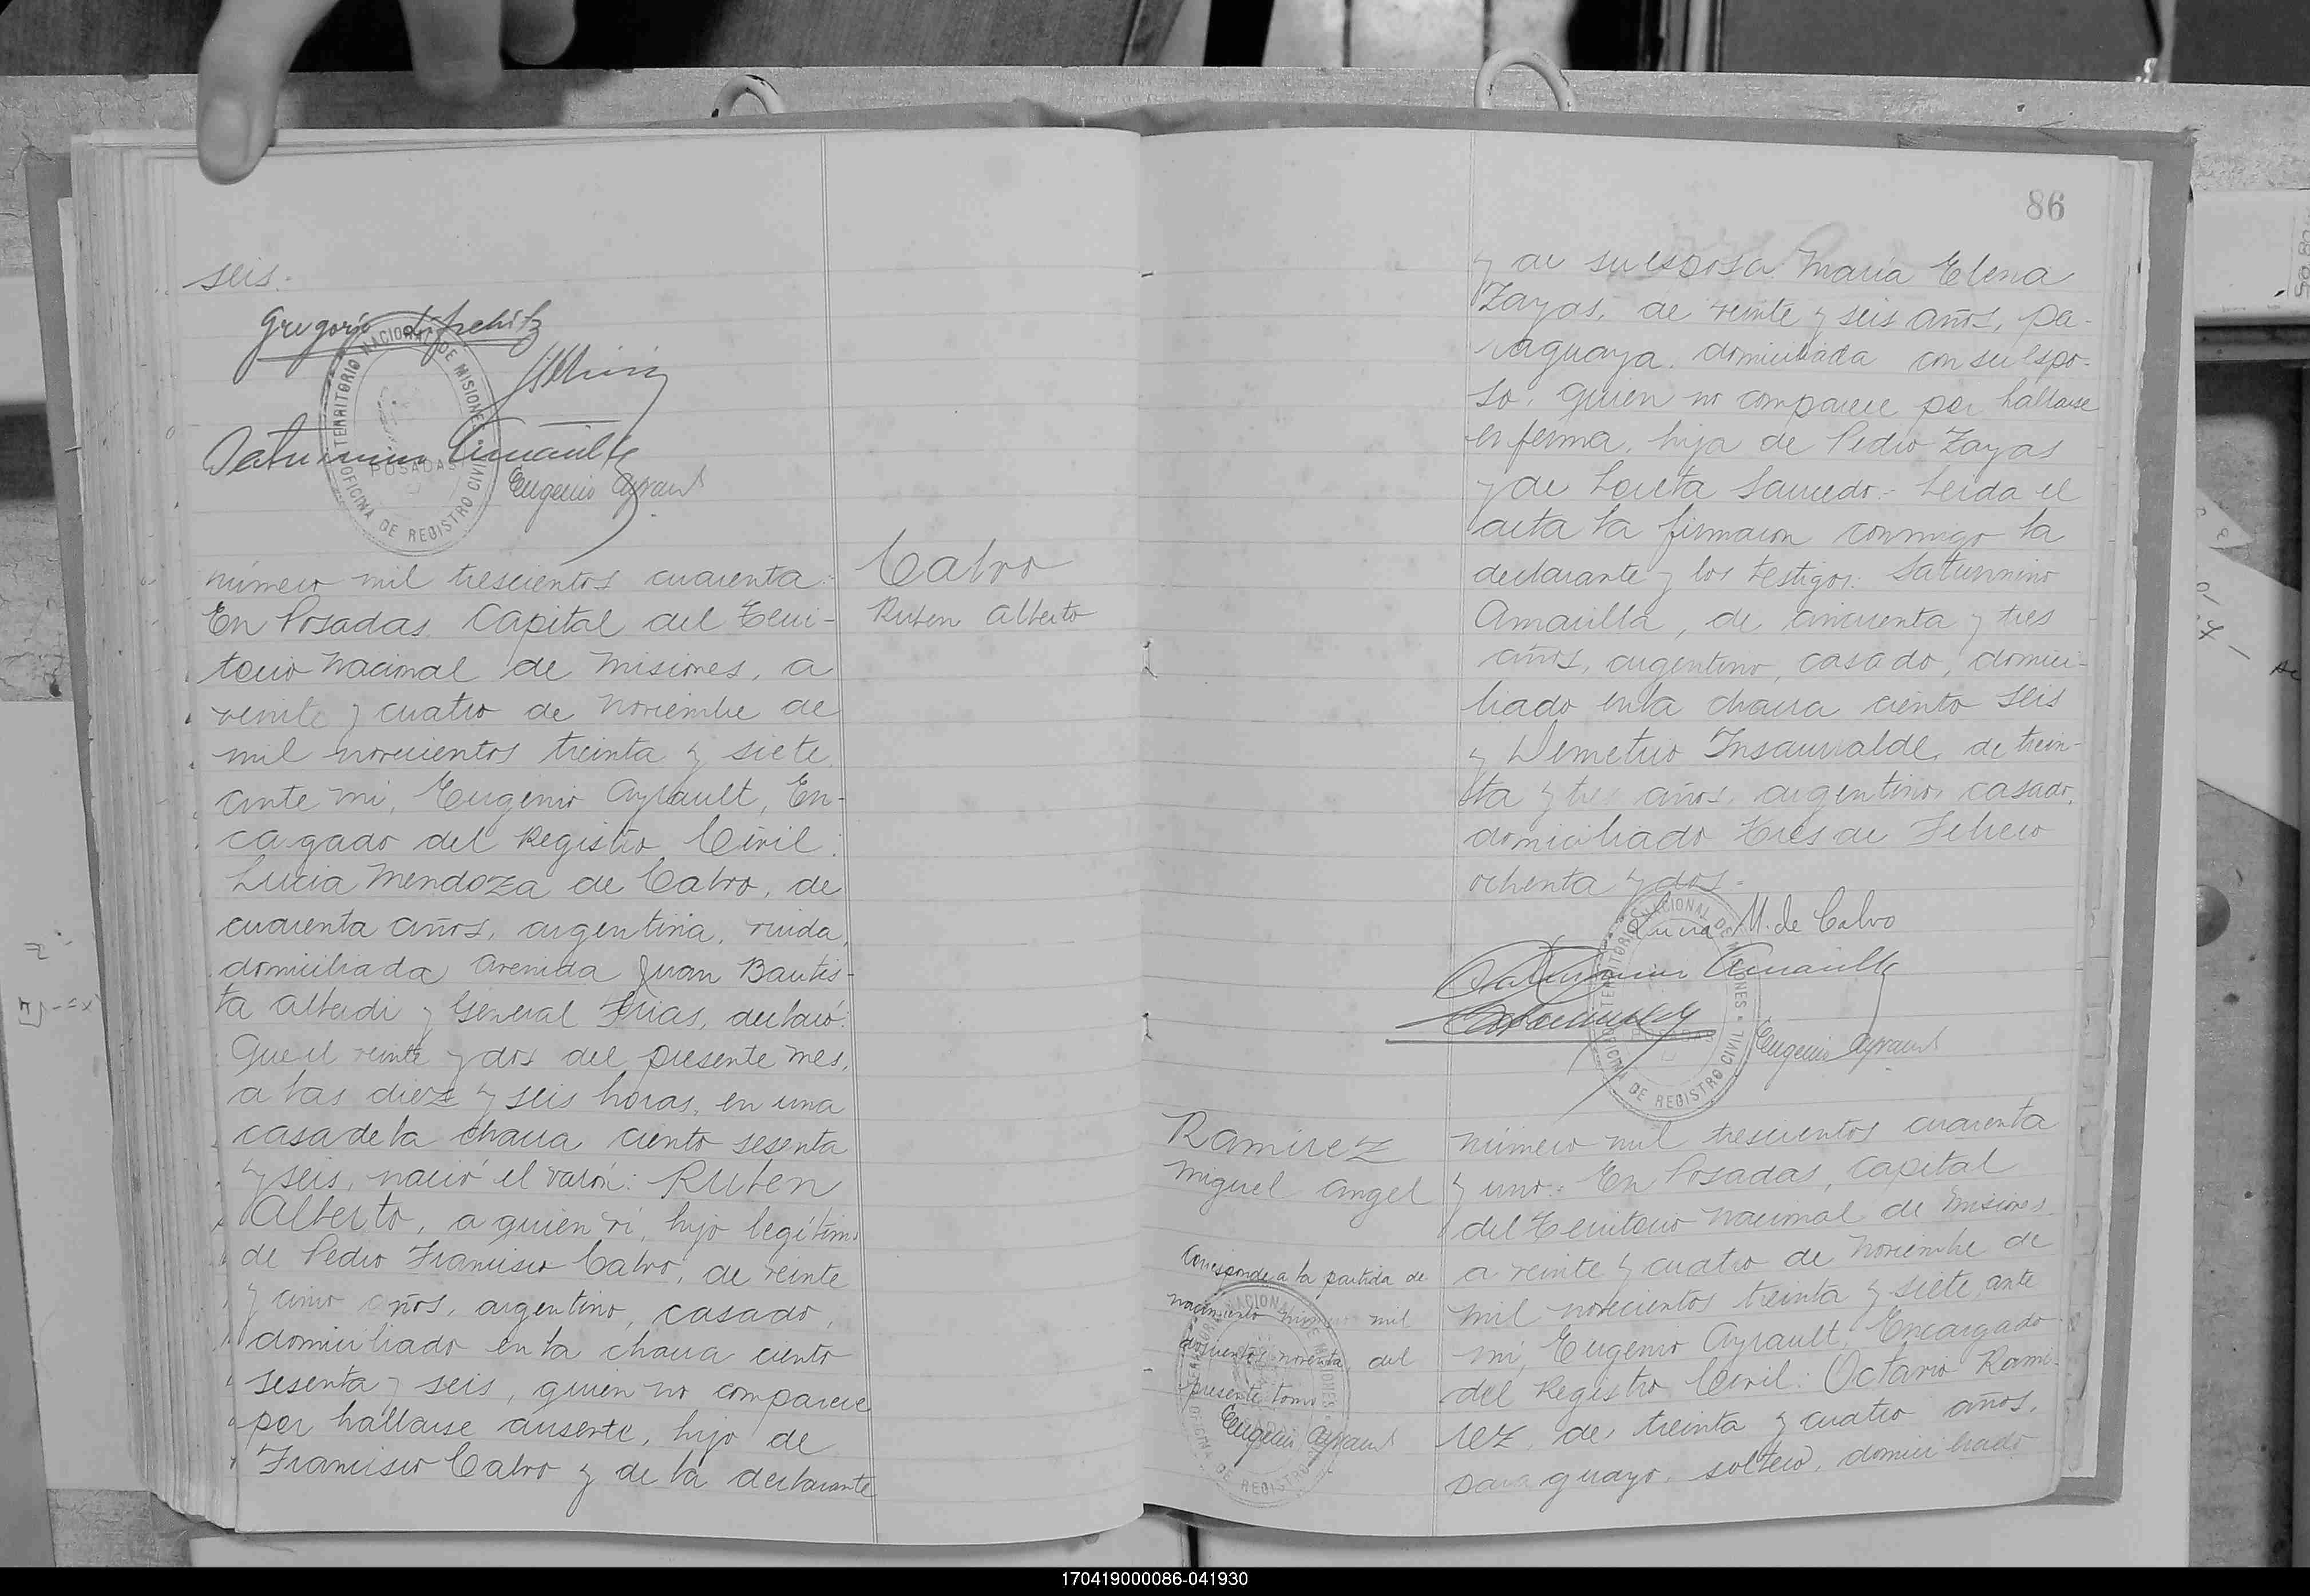 seis.-
Gregorio Lifschitz
Saturnino Amarilla
Eugenio Ayrault
TERRITORIO NACIONAL DE MISIONES
POSADAS
OFICINA DE REGISTRO CIVIL
número mil trescientos cuarenta:
En Posadas Capital del Terri-
torio Nacional de Misiones, a
veinte y cuatro de Noviembre de
mil novecientos treinta y siete,
ante mi, Eugenio Ayrault, En-
cagado del Registro Civil:
Lucia Mendoza de Calvo, de
cuarenta años, argentina, viuda,
domiciliada Avenida Juan Bautis-
ta Alberdi y General Frias, declaró:
Que el veinte y dos del presente mes,
a las diez y seis horas, en una
casa de la chacra ciento sesenta
y seis, nació el varón: Ruben
Alberto, a quien ví, hijo legítimo
de Pedro Francisco Calvo, de veinte
y cinco años, argentino, casado,
domiciliado en la chacra ciento
sesenta y seis, quien no comparece
por hallarse ausente, hijo de
Francisco Calvo y de la declarante
Calvo
Ruben Alberto
86
y de su esposa Maria Elena
Zayas, de veinte y seis años, pa-
raguaya, domiciliada con su espo-
so, quien no comparece por hallarse
enferma, hija de Pedro Zayas
y de Loreta Saucedo.- Leida el
acta la firmaron conmigo la
declarante y los testigos: Saturnino
Amarilla, de cincuenta y tres
años, argentino, casado, domici-
liado en la chacra ciento seis
y Demetrio Insaurralde, de trein-
ta y tres años, argentino, casado,
domiciliado Tres de Febrero
ochenta y dos.-
Lucia M. de Calvo
Saturnino Amarilla
Eugenio Ayrault
TERRITORIO NACIONAL DE MISIONES
OFICINA DE REGISTRO CIVIL
Ramirez
Miguel Angel
Corresponde a la partida de
nacimiento número mil
doscientos noventa, del
presente tomo
Eugenio Ayrault
número mil trescientos cuarenta
y uno: En Posadas, Capital
del Territorio Nacional de Misiones
a veinte y cuatro de Noviembre de
mil novecientos treinta y siete, ante
mi, Eugenio Ayrault, Encargado
del Registro Civil: Octavio Rami-
rez, de, treinta y cuatro años,
paraguayo, soltero, domiciliado
170419000086-041930